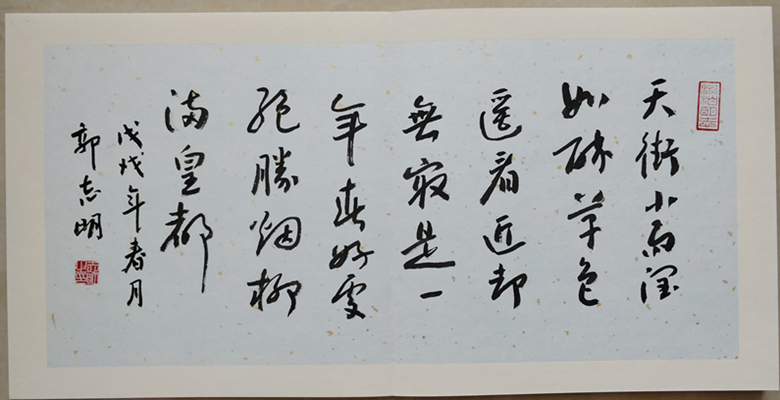 天街小雨潤
如酥草色
遥看近却
無最是一
年春好處
絕勝烟柳
滿皇都
戊戌年春月
郭志明